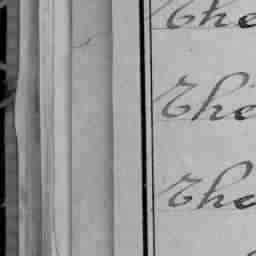 The
The
The